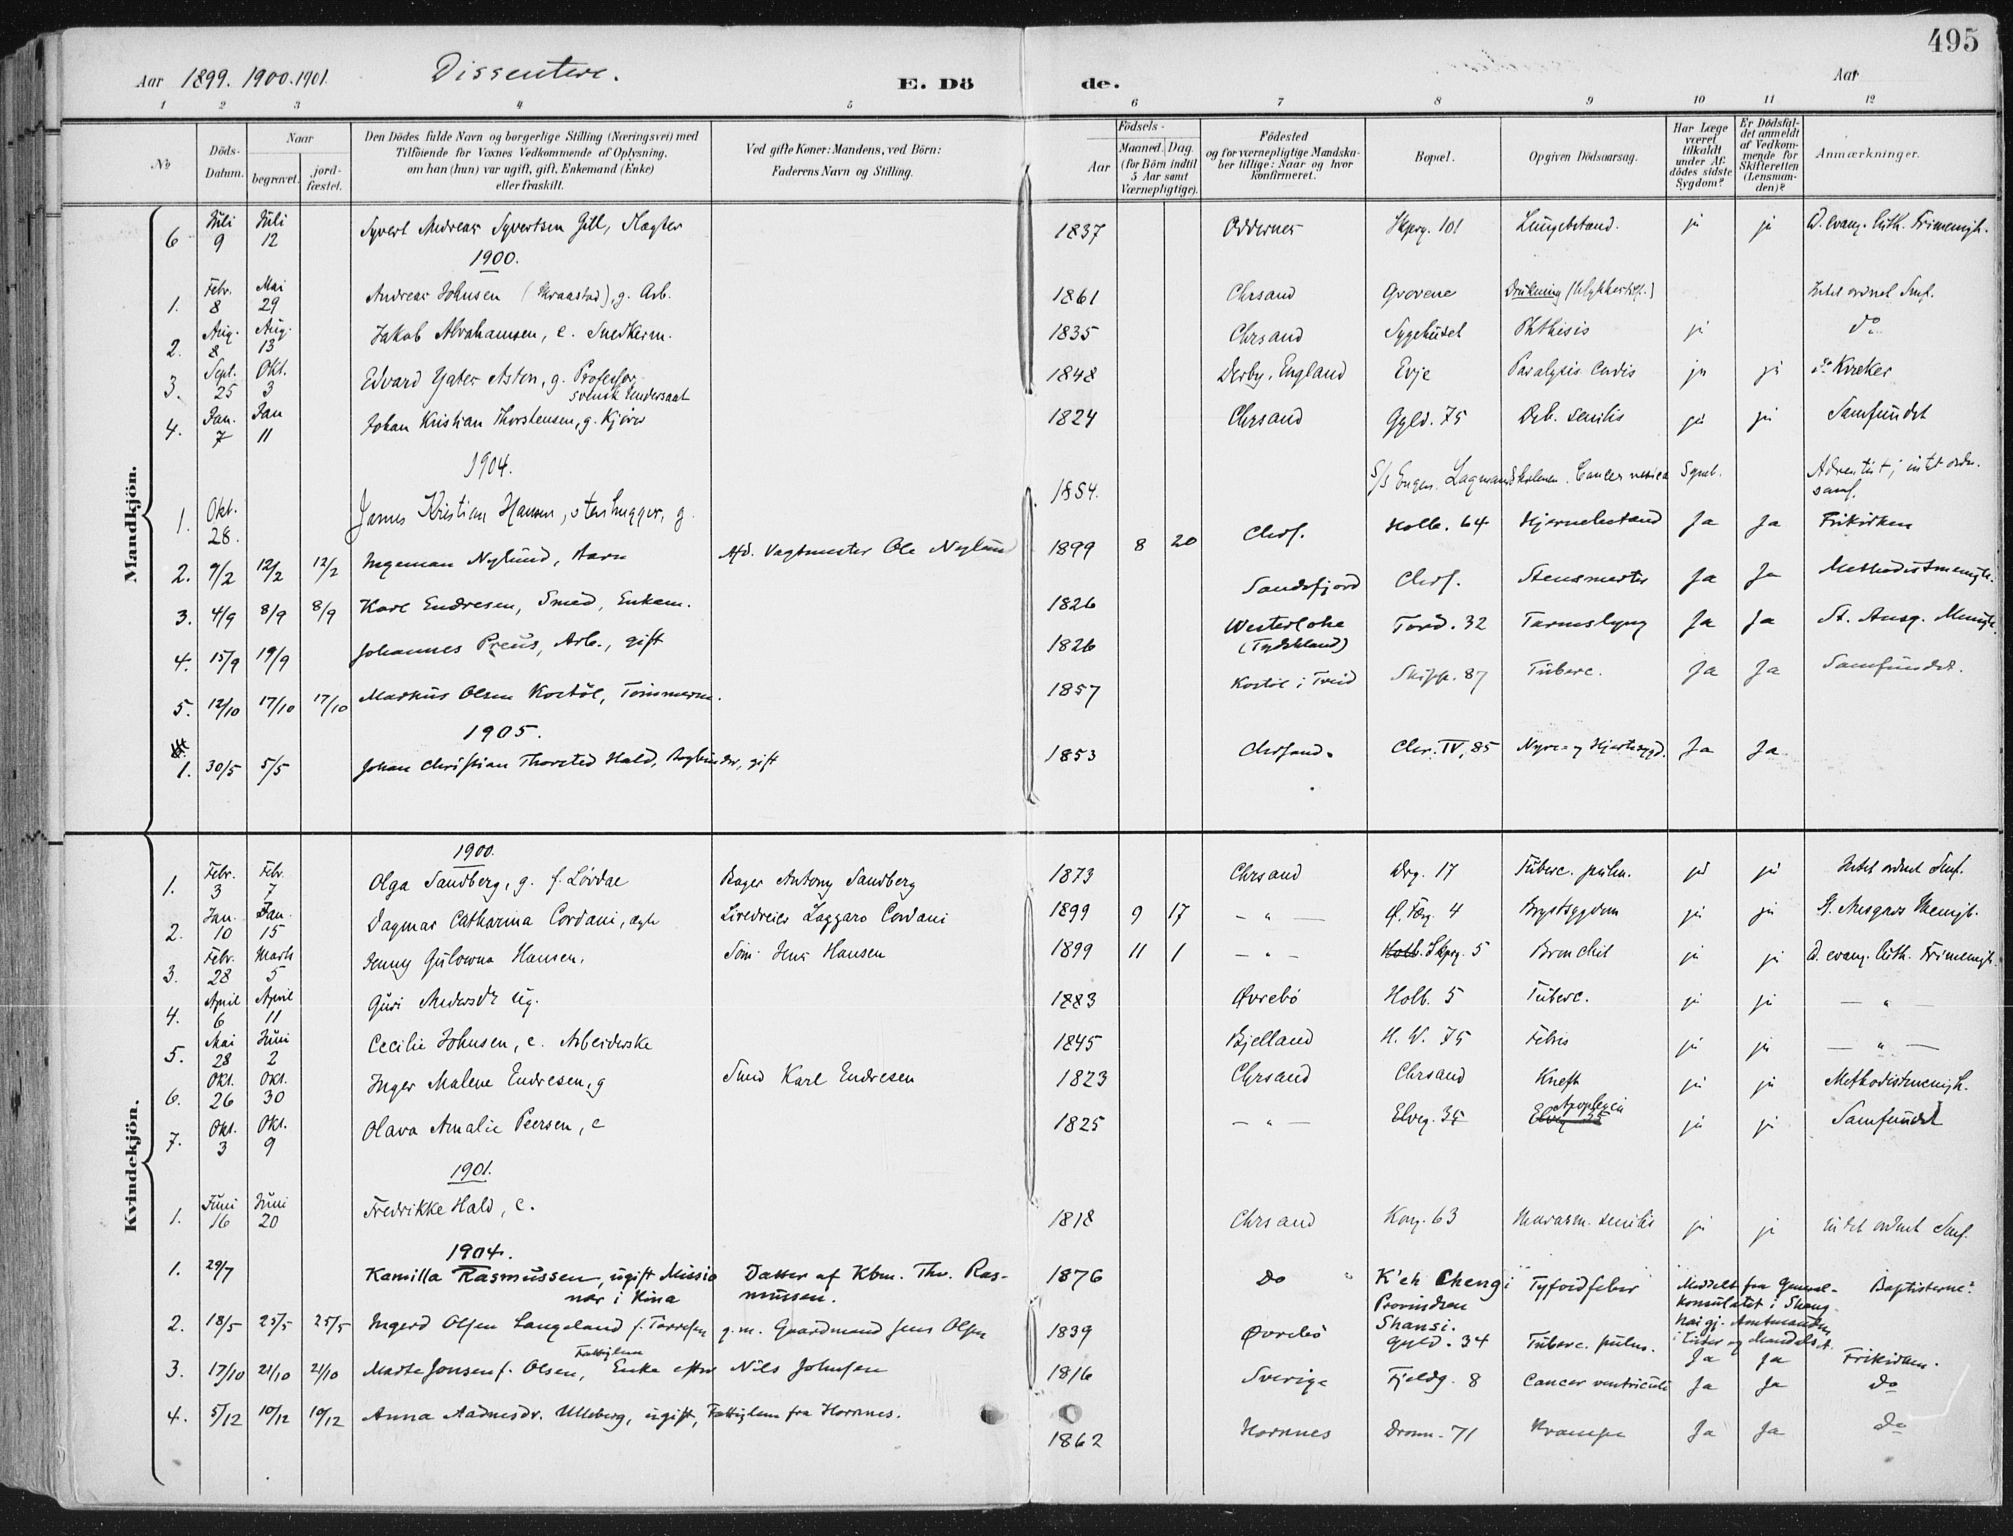 495
Aar 1899. 1900. 1901. Dissentere. E. Dö de. Aar
1 2 3 4 5 6 7 8 9 10 11 12
No
Döds-Datum.
Naar
begravet.
jord-fæstet.
Den Dödes fulde Navn og borgerlige Stilling (Næringsvei) med
Tilföiende for Voxnes Vedkommende af Oplysning,
om han (hun) var ugift, gift, Enkemand (Enke)
eller fraskilt.
Ved gifte Koner: Mandens, ved Börn:
Faderens Navn og Stilling.
Födsels-
Aar
Maaned. Dag.
(for Börn indtil
5 Aar samt
Værnepligtige).
Födested
og for værnepligtige Mandska-
ber tillige: Naar og hvor
konfirmeret.
Bopæl.
Opgiven Dödsaarsag.
Har Læge
været
tilkaldt
under Af-
dödes sidste
Sygdom?
Er Dödsfal-
det anmeldt
af Vedkom-
mende for
Skifteretten
(Lensman-
den)?
Anmærkninger.
Mandkjön.
6 Juli 9 Juli 12 Syvert Andreas Syvertsen Gill, 1837 Oddernes Skprg. 101 ja ja D. evang. luth. Frimenigh.
1900.
1. Febr. 8 Mai 29 Andreas Johnsen g. Arb. 1861 Chrsand Grovene Drukning Intet ordnet Smf.
2. Aug. 8 Aug. 13 Jakob Abrahamsen, e. Snedkerm. 1835 Chrsand Sygehuset Phthisis ja do
3. Sept. 25 Okt. 3 Edvard Yates Aston, g. Professor svensk Undersaat 1848 Derby, England Evje Paralysis Cordis ja ja do Kvæker
4. Jan. 7 Jan 11 Johan Kristian Thorstensen, g. 1824 Chrsand Gyld. 75 Deb. senilis ja ja Samfundet
1904.
1. Okt. 28. James Kristian Hansen, stenhugger, g. 1854. S/S Lagmandsholmen. Cancer Adventist; intet ordn. samf.
2. 9/2 12/2 12/2 Ingeman Nylund, Barn Afd. Vagtmester Ole Nylund 1899 8 20 Chrs. Holb. 64 Hjernebetænd Ja Ja Frikirken
3. 4/9 8/9 8/9 Karl Endresen, Smed, Enkem. 1826 Sandefjord Chrs. Ja Ja Methodistmenigh.
4. 15/9 19/9 Johannes Preus, Arb., gift 1826 (Tydskland) Tord. 32 Ja Ja St. Ansg. Menigh.
5. 12/10 17/10 17/10 Markus Olsen Kostöl, Tömmerm. 1857 Kostöl i Skipp. 87 Tuberc. Ja Ja Samfundet.
1905.
1. 30/5 5/5 Johan Christian Thorsted Hald, Bogbinder, gift 1853 Chrsand. Chr. IV, 85 Nyre- og Hjertesygd. Ja Ja
Kvindekjön.
1900.
1. Febr. 3 Febr. 7 Olga Sandberg, g. f. Lövdal Bager Antony Sandberg 1873 Chrsand Drg. 17 Tuberc. pulm. ja ja Intet ordnet Smf.
2. Jan. 10 Jan. 15 Dagmar Catharina Cordani, Liredreier Laggaro Cordani 1899 9 17 — " — Brystsygdom ja ja St. Ansgars Menigh.
3. Febr. 28 Marts 5 Jenny Gulowna Hansen, Töm. Jens Hansen 1899 11 1 — " — Holb. Skprg. 5 Bronchit ja ja D. evang. luth. Frimenigh.
4. April 6 April 11 Guri Andersdr ug. 1883 Øvrebö Holb. 5 Tuberc. ja ja — " —
5. Mai 28 Juni 2 Cecilie Johnsen, e. Arbeiderske 1845 Bjelland H. W. 75 Febris ja ja — " —
6. Okt. 26 Okt. 30 Inger Malene Endresen, g Smed Karl Endresen 1823 Chrsand Chrsand Kræft ja ja Methodistmenigh.
7. Okt. 3 Okt. 9 Olava Amalie Peersen, e 1825 — " — Elveg. 35 Elveg 35 Apoplexia ja ja Samfundet
1901.
1. Juni 16 Juni 20 Fredrikke Hald, e. 1818 Chrsand Kong. 63 Marasm. senilis ja ja Intet ordnet Smf.
1904.
1. 29/7 Kamilla Rasmussen, ugift Missio
nær i Kina Datter af Kbm. Thv. Ras-
mussen. 1876 Do K'eh Chengi
Provindsen
Shansi. Tyfoidfeber Meddelt fra General-
konsulatet i Shang-
hai gj. Amtmanden
i Lister og Mandals A. Baptisterne?
2. 18/5 25/5 25/5 Ingerd Olsen Langeland f. Torresen g. m. Gaardmand Jens Olsen 1839 Øvrebö Gyld. 34 Tuberc. pulm. Ja Ja Frikirken.
3. 17/10 21/10 21/10 Marte Jonsen f. Olsen, Fattiglem Enke efter Nils Johnsen 1816 Sverige Fjeldg. 8 Cancer ventriculi Ja Ja Do
4. 5/12 10/12 10/12 Anna Aadnesdr. Ulleberg, ugift, Fattiglem fra Hornnes. 1862 Hornnes Dronn. 71 Krampe Ja Ja Do